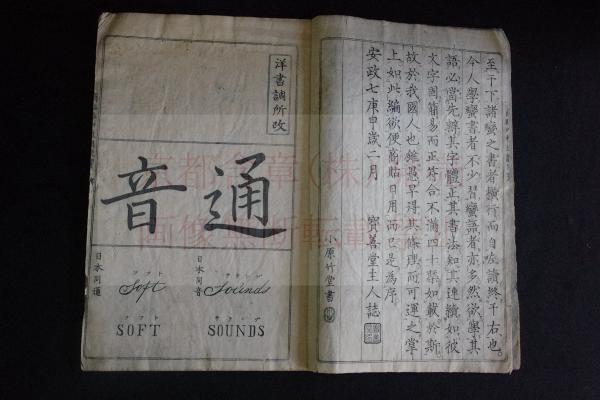 至于下諸蠻之書者横行而自左讀終于右也
今人學蠻書者不少習蠻語者亦多然欲學其
語必當先辨其字體正其書法知其連續如彼
文字固簡易而正符合不滿四十葉如載於斯
故於我國人也雖愚早得其條理而可運之掌
上如此編欲便商賈日用而已是為序
安政七庚申歲二月
寳善堂主人誌
小原竹堂書
洋書調所改
通音
日本同音
サウンヅ
Sounds
サウンヅ
SOUNDS
日本同通
ソフト
Soft
ソフト
SOFT